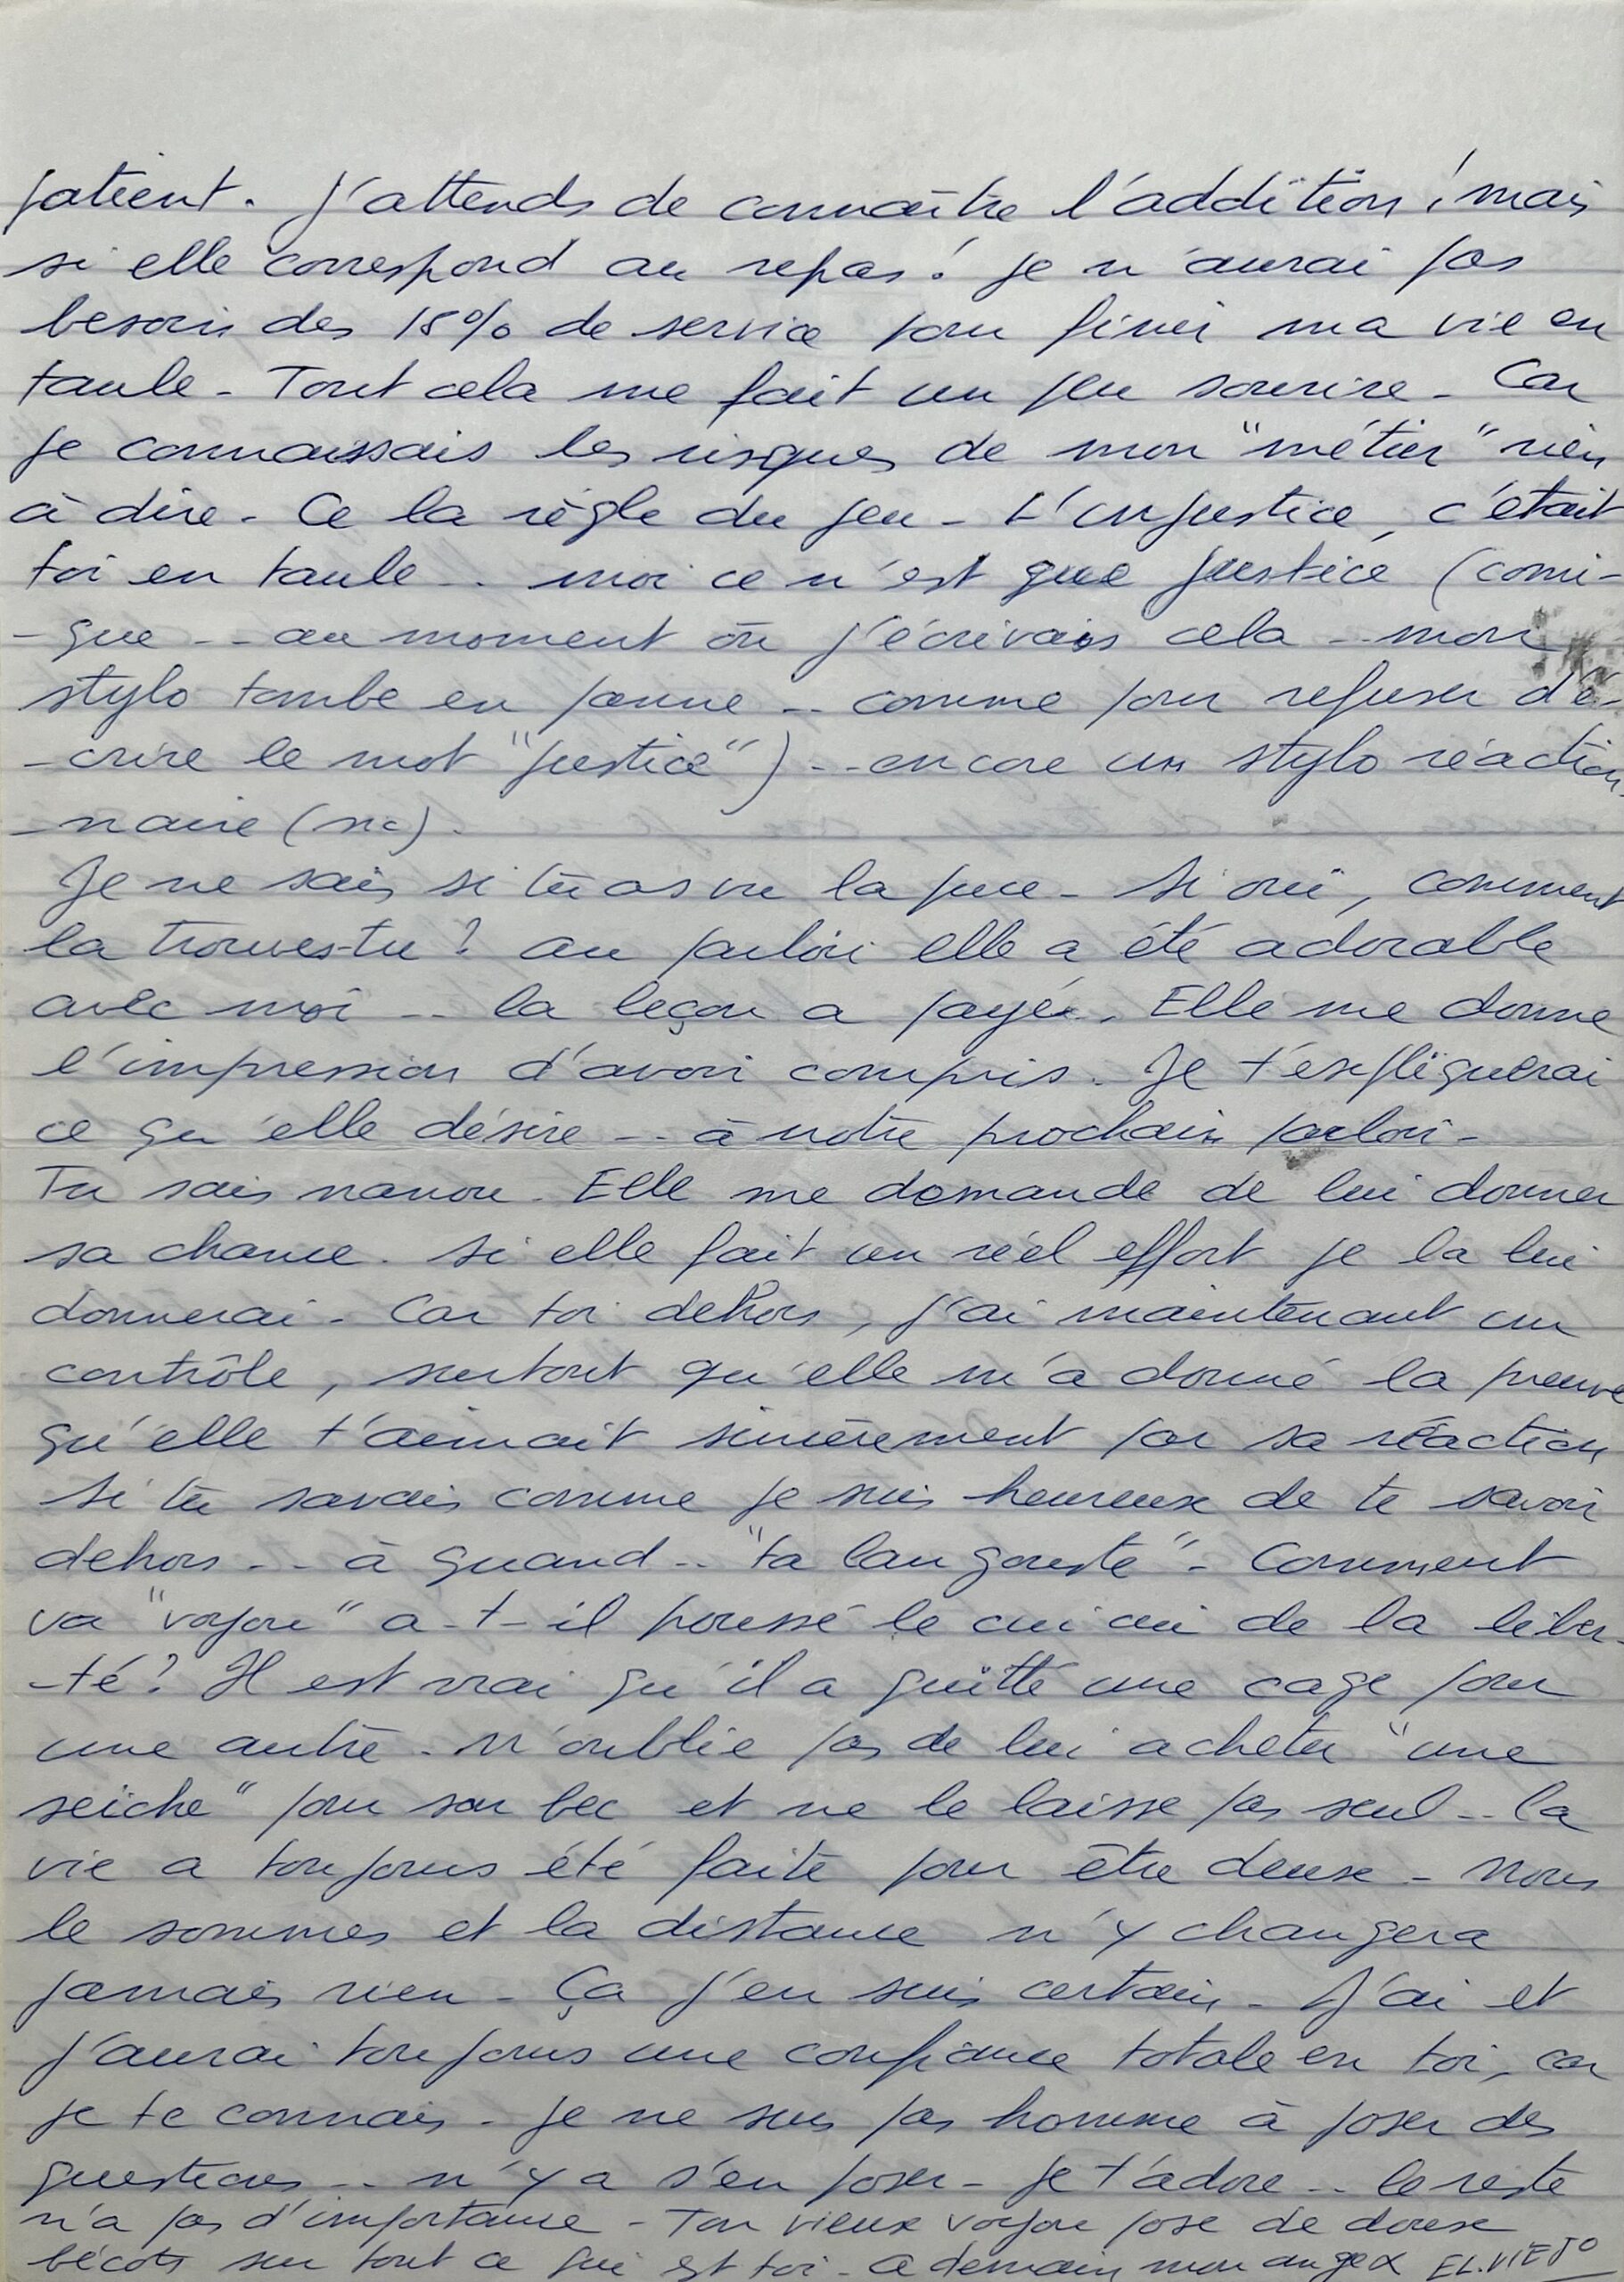 patient. J'attends de connaître l'addition ! mais
si elle correspond au repas ! je n'aurai pas
besoin des 15% de service pour finir ma vie en
taule - Tout cela me fait un peu sourire - Car
je connaissais les risques de mon "métier" rien
à dire - Ce la règle du jeu - L'injustice, c'était
toi en taule .. moi ce n'est que justice (comi-
-que .. au moment où j'écrivais cela .. mon
stylo tombe en panne .. comme pour refuser d'é-
-crire le mot "justice") .. encore un stylo réaction-
-naire (sic).
Je ne sais si tu as vu la puce - Si oui, comment
la trouves-tu ? au parloir elle a été adorable
avec moi .. la leçon a payée. Elle me donne
l'impression d'avoir compris. Je t'expliquerai
ce qu'elle désire .. à notre prochain parloir -
Tu sais nanou. Elle me demande de lui donner
sa chance. Si elle fait un réel effort je la lui
donnerai - Car toi dehors, j'ai maintenant un
contrôle, surtout qu'elle m'a donné la preuve
qu'elle t'aimait sincèrement par sa réaction
Si tu savais comme je suis heureux de te savoir
dehors .. à quand .. "ta langouste" - Comment
va "voyou" a-t-il poussé le cui cui de la liber-
-té ? Il est vrai qu'il a quitté une cage pour
une autre. N'oublie pas de lui acheter "une
seiche" pour son bec et ne le laisse pas seul .. la
vie a toujours été faite pour être deux - Nous
le sommes et la distance n'y changera
jamais rien - Ça j'en suis certain - J'ai et
j'aurai toujours une confiance totale en toi, car
je te connais - Je ne suis pas homme à poser des
questions .. n'y a s'en poser - Je t'adore .. le reste
n'a pas d'importance - Ton vieux voyou pose de doux
bécots sur tout ce qui est toi - a demain mon ange EL.VIEJO